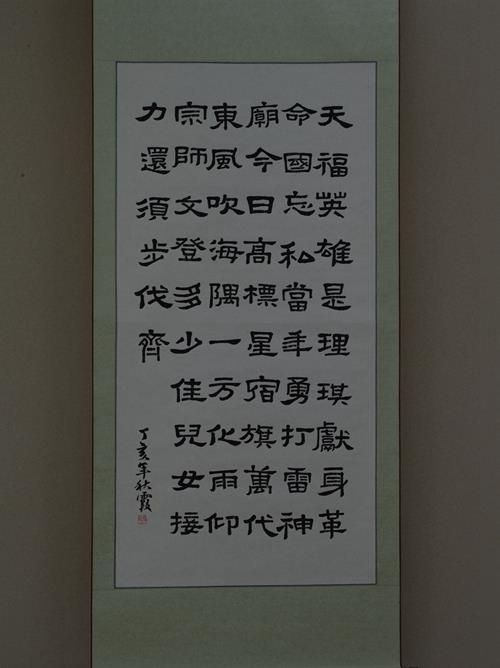 天福英雄是理琪獻身革
命國忘私當年勇打雷神
廟今日高標星宿旗萬代
東風吹海隅一方化雨仰
宗師文登多少佳兒女接
力還須步伐齊
丁亥年秋霞